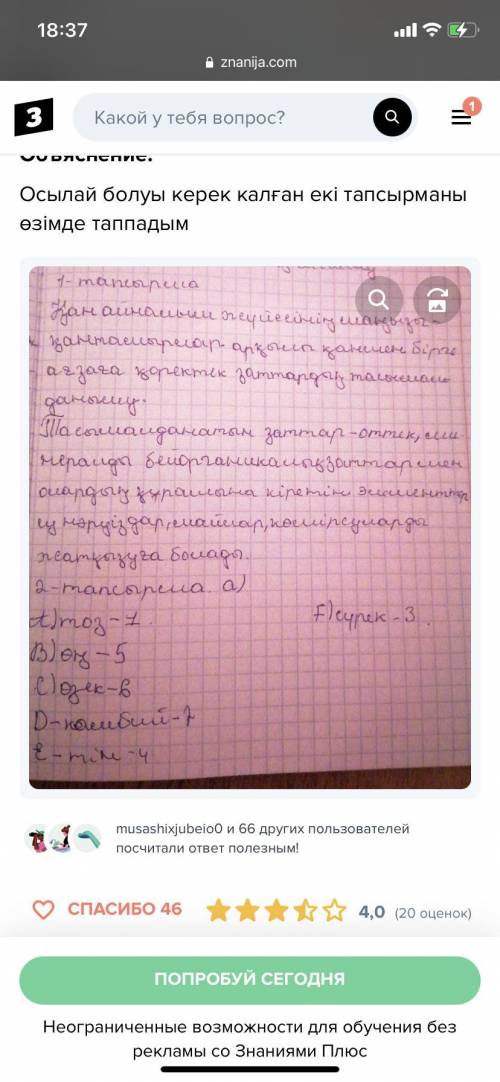 18:37
znanija.com
З
Какой у тебя вопрос?
1
Объяснение:
Осылай болуы керек калған екі тапсырманы
өзімде таппадым
1-тапсырма
Қан айналым жүйесінің маңызы-
қантамырлар арқылы қанмен бірге
ағзаға қоректік заттардың тасымал
данылу.
Тасымалданатын заттар-оттек, ми
нералды бейорганикалық заттар мен
олардың құрамына кіретін элементтер
су нәруіздар, майлар, көмірсуларды
жатқызуға болады.
2-тапсырма. а)
А) тоз-1.
F) сүрек-3.
B) өң-5
C) өзек-6
D-камбий-7
E-тін-4
musashixjubeio0 и 66 других пользователей
посчитали ответ полезным!
СПАСИБО 46
4,0 (20 оценок)
ПОПРОБУЙ СЕГОДНЯ
Неограниченные возможности для обучения без
рекламы со Знаниями Плюс